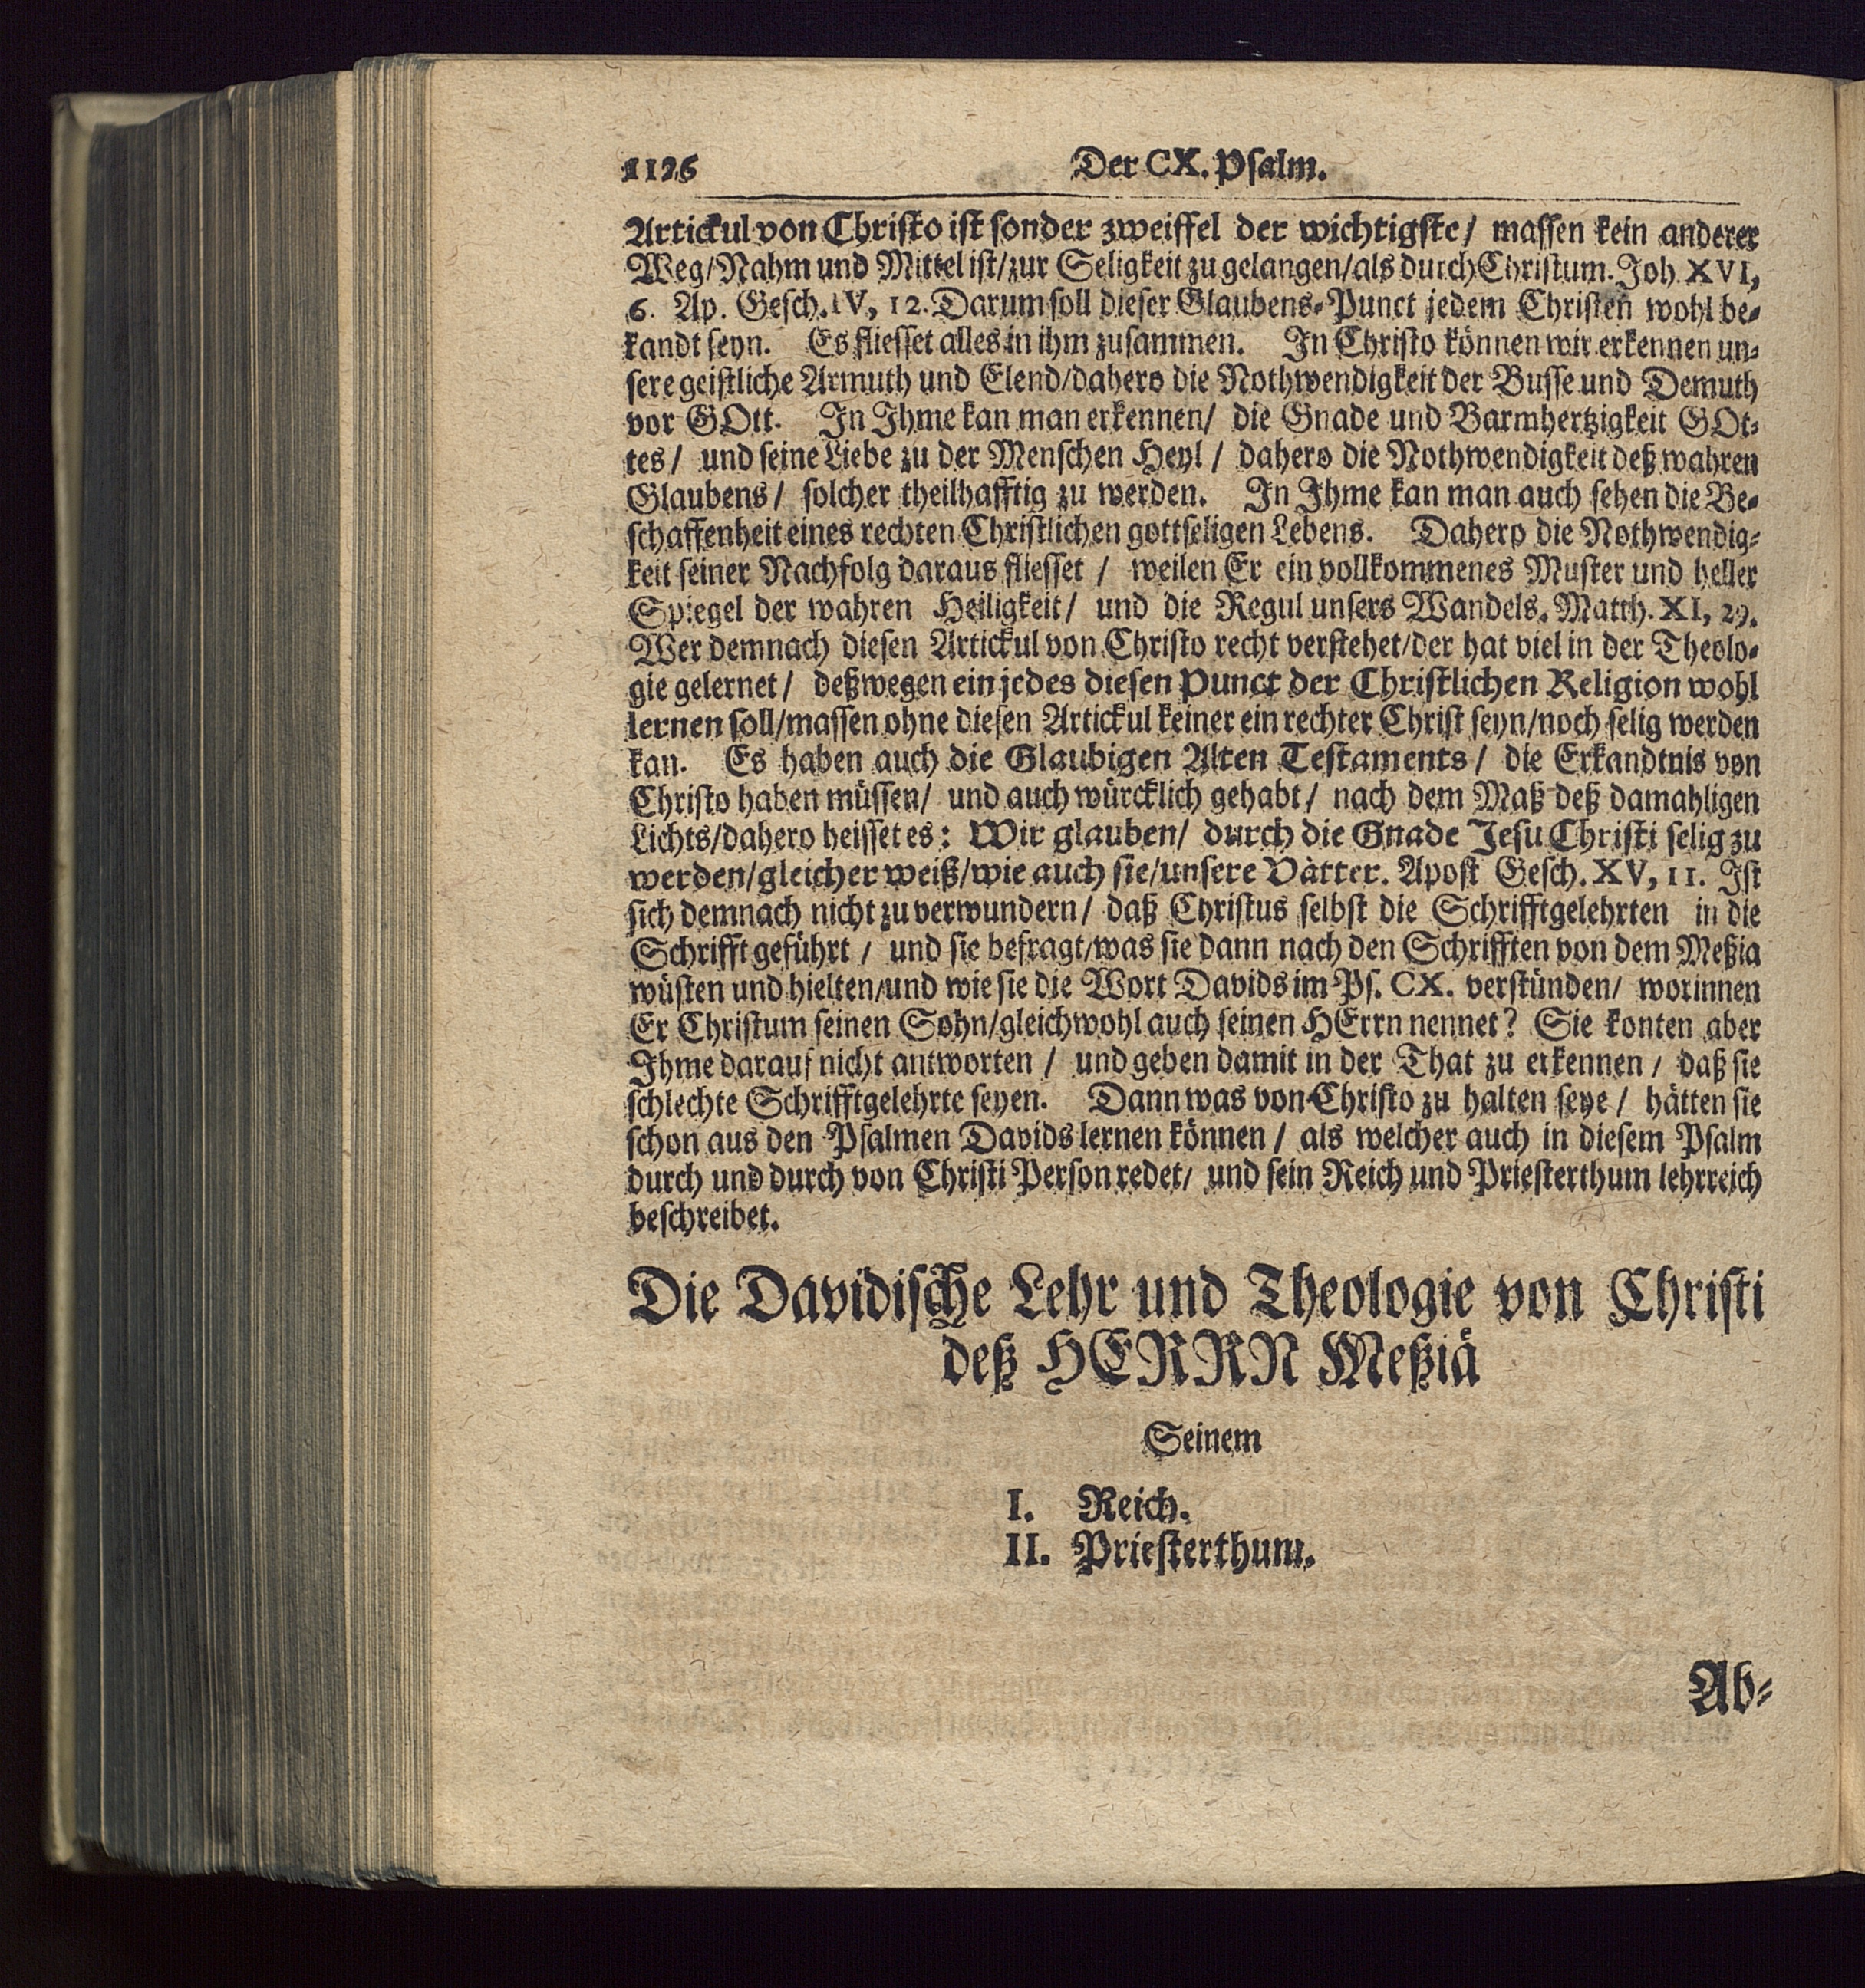 1126 Der CX. Psalm.
Artickul von Christo ist sonder zweiffel der wichtigste/ massen kein anderer
Weg/Nahm und Mittel ist/zur Seligkeit zu gelangen/als durch Christum. Joh. XVI,
6. Ap. Gesch. IV, 12. Darum soll dieser Glaubens-Punct jedem Christen wohl be-
kandt seyn. Es fliesset alles in ihm zusammen. In Christo können wir erkennen un-
sere geistliche Armuth und Elend/dahero die Nothwendigkeit der Busse und Demuth
vor GOtt. In Ihme kan man erkennen/ die Gnade und Barmhertzigkeit GOt-
tes/ und seine Liebe zu der Menschen Heyl/ dahero die Nothwendigkeit deß wahren
Glaubens/ solcher theilhafftig zu werden. In Ihme kan man auch sehen die Be-
schaffenheit eines rechten Christlichen gottseligen Lebens. Dahero die Nothwendig-
keit seiner Nachfolg daraus fliesset/ weilen Er ein vollkommenes Muster und heller
Spiegel der wahren Heiligkeit/ und die Regul unsers Wandels. Matth. XI, 29.
Wer demnach diesen Artickul von Christo recht verstehet/der hat viel in der Theolo-
gie gelernet/ deßwegen ein jedes diesen Punct der Christlichen Religion wohl
lernen soll/massen ohne diesen Artickul keiner ein rechter Christ seyn/noch selig werden
kan. Es haben auch die Glaubigen Alten Testaments/ die Erkandtnis von
Christo haben müssen/ und auch würcklich gehabt/ nach dem Maß deß damahligen
Lichts/dahero heisset es: Wir glauben/ durch die Gnade Jesu Christi selig zu
werden/gleicher weiß/wie auch sie/unsere Vätter. Apost Gesch. XV, 11. Ist
sich demnach nicht zu verwundern/ daß Christus selbst die Schrifftgelehrten in die
Schrifft geführt/ und sie befragt/was sie dann nach den Schrifften von dem Meßia
wüsten und hielten/und wie sie die Wort Davids im Ps. CX. verstünden/ worinnen
Er Christum seinen Sohn/gleichwohl auch seinen HErrn nennet? Sie konten aber
Ihme darauf nicht antworten/ und geben damit in der That zu erkennen/ daß sie
schlechte Schrifftgelehrte seyen. Dann was von Christo zu halten seye/ hätten sie
schon aus den Psalmen Davids lernen können/ als welcher auch in diesem Psalm
durch und durch von Christi Person redet/ und sein Reich und Priesterthum lehrreich
beschreibet.
Die Davidische Lehr und Theologie von Christi
deß HERRN Meßiä
Seinem
I. Reich.
II. Priesterthum.
Ab-